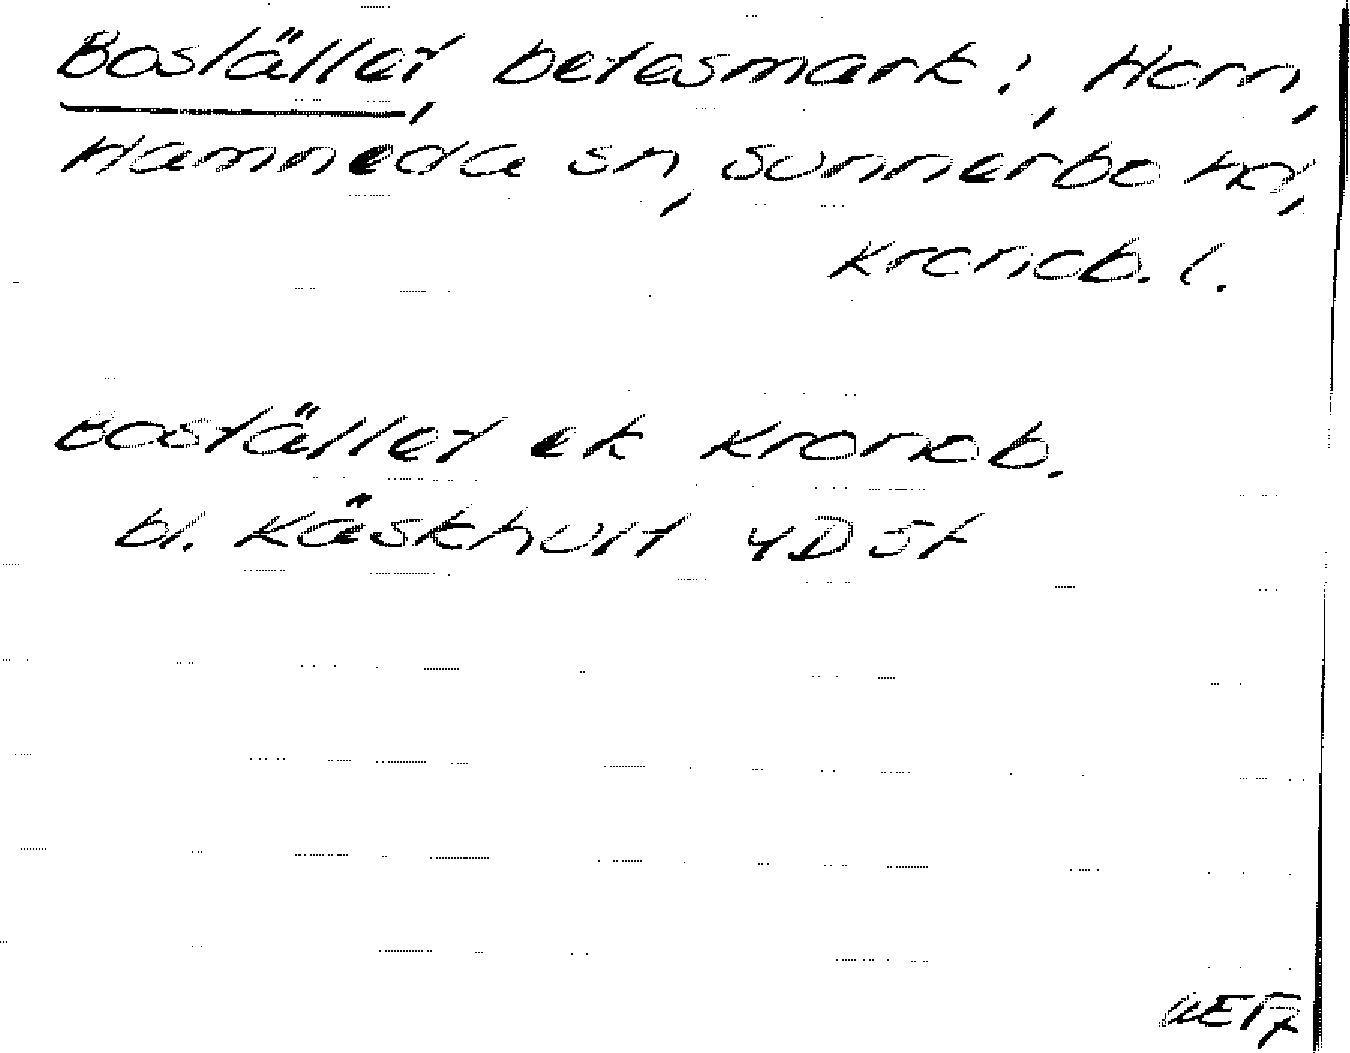 Bostället, betesmark i, Horn,
Hamneda sn, Sunnerbo hd,
Kronob. l.
Bostället ek Kronob.
bl. Käskhult 4D 5f